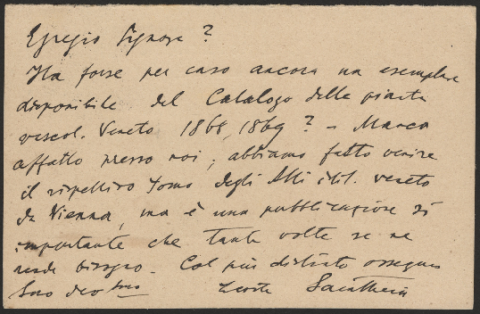 Egregio Signore?
Ha forse per caso ancora un esemplare
disponibile del Catalogo delle piante
vascol. Veneto 1868, 1869? – Manca
affatto presso noi; abbiamo fatto venire
il rispettivo Tomo degli Atti istit. veneto
da Vienna, ma è una pubblicazione sì
importante che tante volte se ne
rende bisogno. Col più distinto ossequio
Suo dev.mo